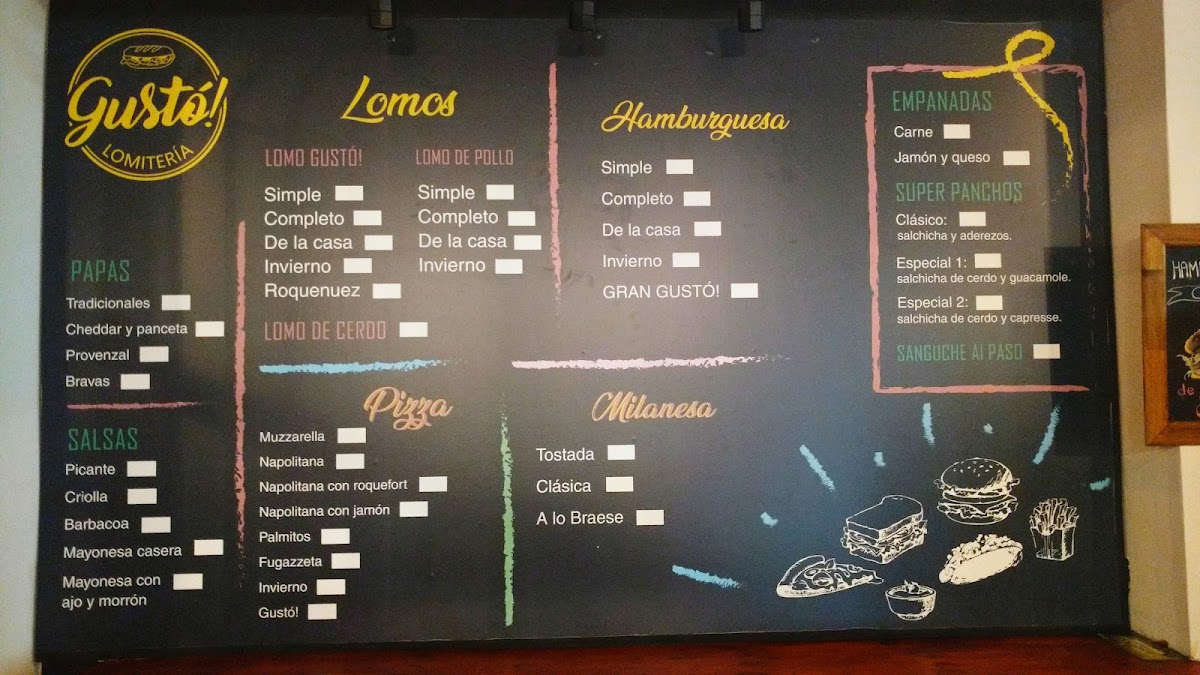 Gustó!
LOMITERÍA
PAPAS
Tradicionales
Cheddar y panceta
Provenzal
Bravas
SALSAS
Picante
Criolla
Barbacoa
Mayonesa casera
Mayonesa con
ajo y morrón
Lomos
LOMO GUSTÓ!
Simple
Completo
De la casa
Invierno
Roquenuez
LOMO DE CERDO
LOMO DE POLLO
Simple
Completo
De la casa
Invierno
Hamburguesa
Simple
Completo
De la casa
Invierno
GRAN GUSTÓ!
Pizza
Muzzarella
Napolitana
Napolitana con roquefort
Napolitana con jamón
Palmitos
Fugazzeta
Invierno
Gustó!
Milanesa
Tostada
Clásica
A lo Braese
EMPANADAS
Carne
Jamón y queso
SUPER PANCHOS
Clásico:
salchicha y aderezos.
Especial 1:
salchicha de cerdo y guacamole.
Especial 2:
salchicha de cerdo y capresse.
SANGUCHE Al PASO
HAM
de